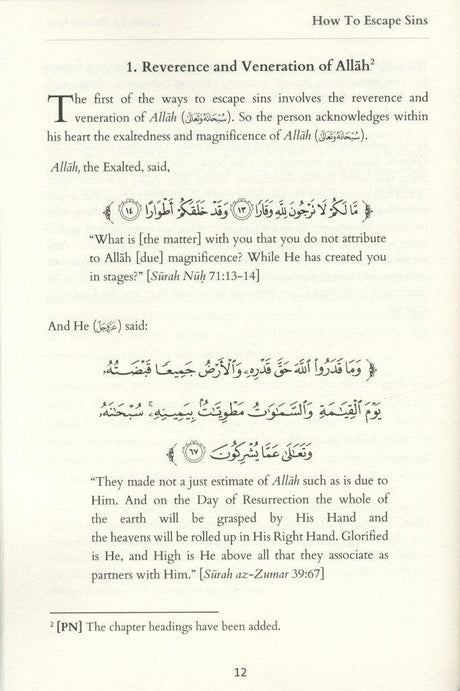 How To Escape Sins
1. Reverence and Veneration of Allāh²
The first of the ways to escape sins involves the reverence and
veneration of Allāh (سُبْحَانَهُ وَتَعَالَى). So the person acknowledges within
his heart the exaltedness and magnificence of Allāh (سُبْحَانَهُ وَتَعَالَى).
Allāh, the Exalted, said,
﴿ مَّا لَكُمْ لَا تَرْجُونَ لِلَّهِ وَقَارًا ١٣ وَقَدْ خَلَقَكُمْ أَطْوَارًا ١٤ ﴾
“What is [the matter] with you that you do not attribute
to Allāh [due] magnificence? While He has created you
in stages?” [Sūrah Nūḥ 71:13-14]
And He (عَزَّوَجَلَّ) said:
﴿ وَمَا قَدَرُوا۟ ٱللَّهَ حَقَّ قَدْرِهِۦ وَٱلْأَرْضُ جَمِيعًا قَبْضَتُهُۥ
يَوْمَ ٱلْقِيَٰمَةِ وَٱلسَّمَٰوَٰتُ مَطْوِيَّٰتٌۢ بِيَمِينِهِۦ ۚ سُبْحَٰنَهُۥ
وَتَعَٰلَىٰ عَمَّا يُشْرِكُونَ ٦٧ ﴾
“They made not a just estimate of Allāh such as is due to
Him. And on the Day of Resurrection the whole of
the earth will be grasped by His Hand and
the heavens will be rolled up in His Right Hand. Glorified
is He, and High is He above all that they associate as
partners with Him.” [Sūrah az-Zumar 39:67]
² [PN] The chapter headings have been added.
12